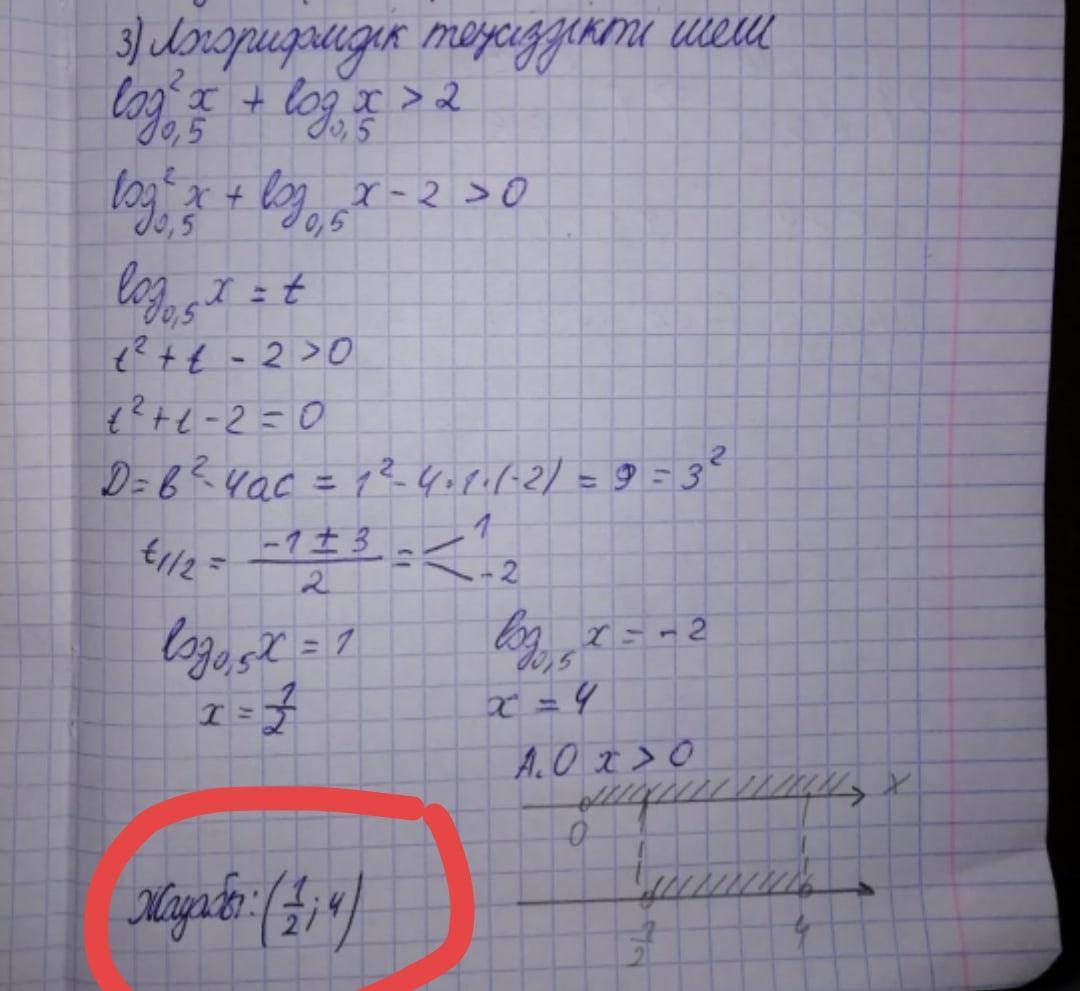 3) Логорифмдік теңсіздікті шеш
log²₀,₅ x + log₀,₅ x > 2
log²₀,₅ x + log₀,₅ x - 2 > 0
log₀,₅ x = t
t² + t - 2 > 0
t² + t - 2 = 0
D = b² - 4ac = 1² - 4·1·(-2) = 9 = 3²
t₁/₂ = (-1 ± 3)/2 = < 1 -2
log₀,₅ x = 1 log₀,₅ x = -2
x = 1/2 x = 4
А.О x > 0
x
0
Жауабы: (1/2; 4)
1/2 4